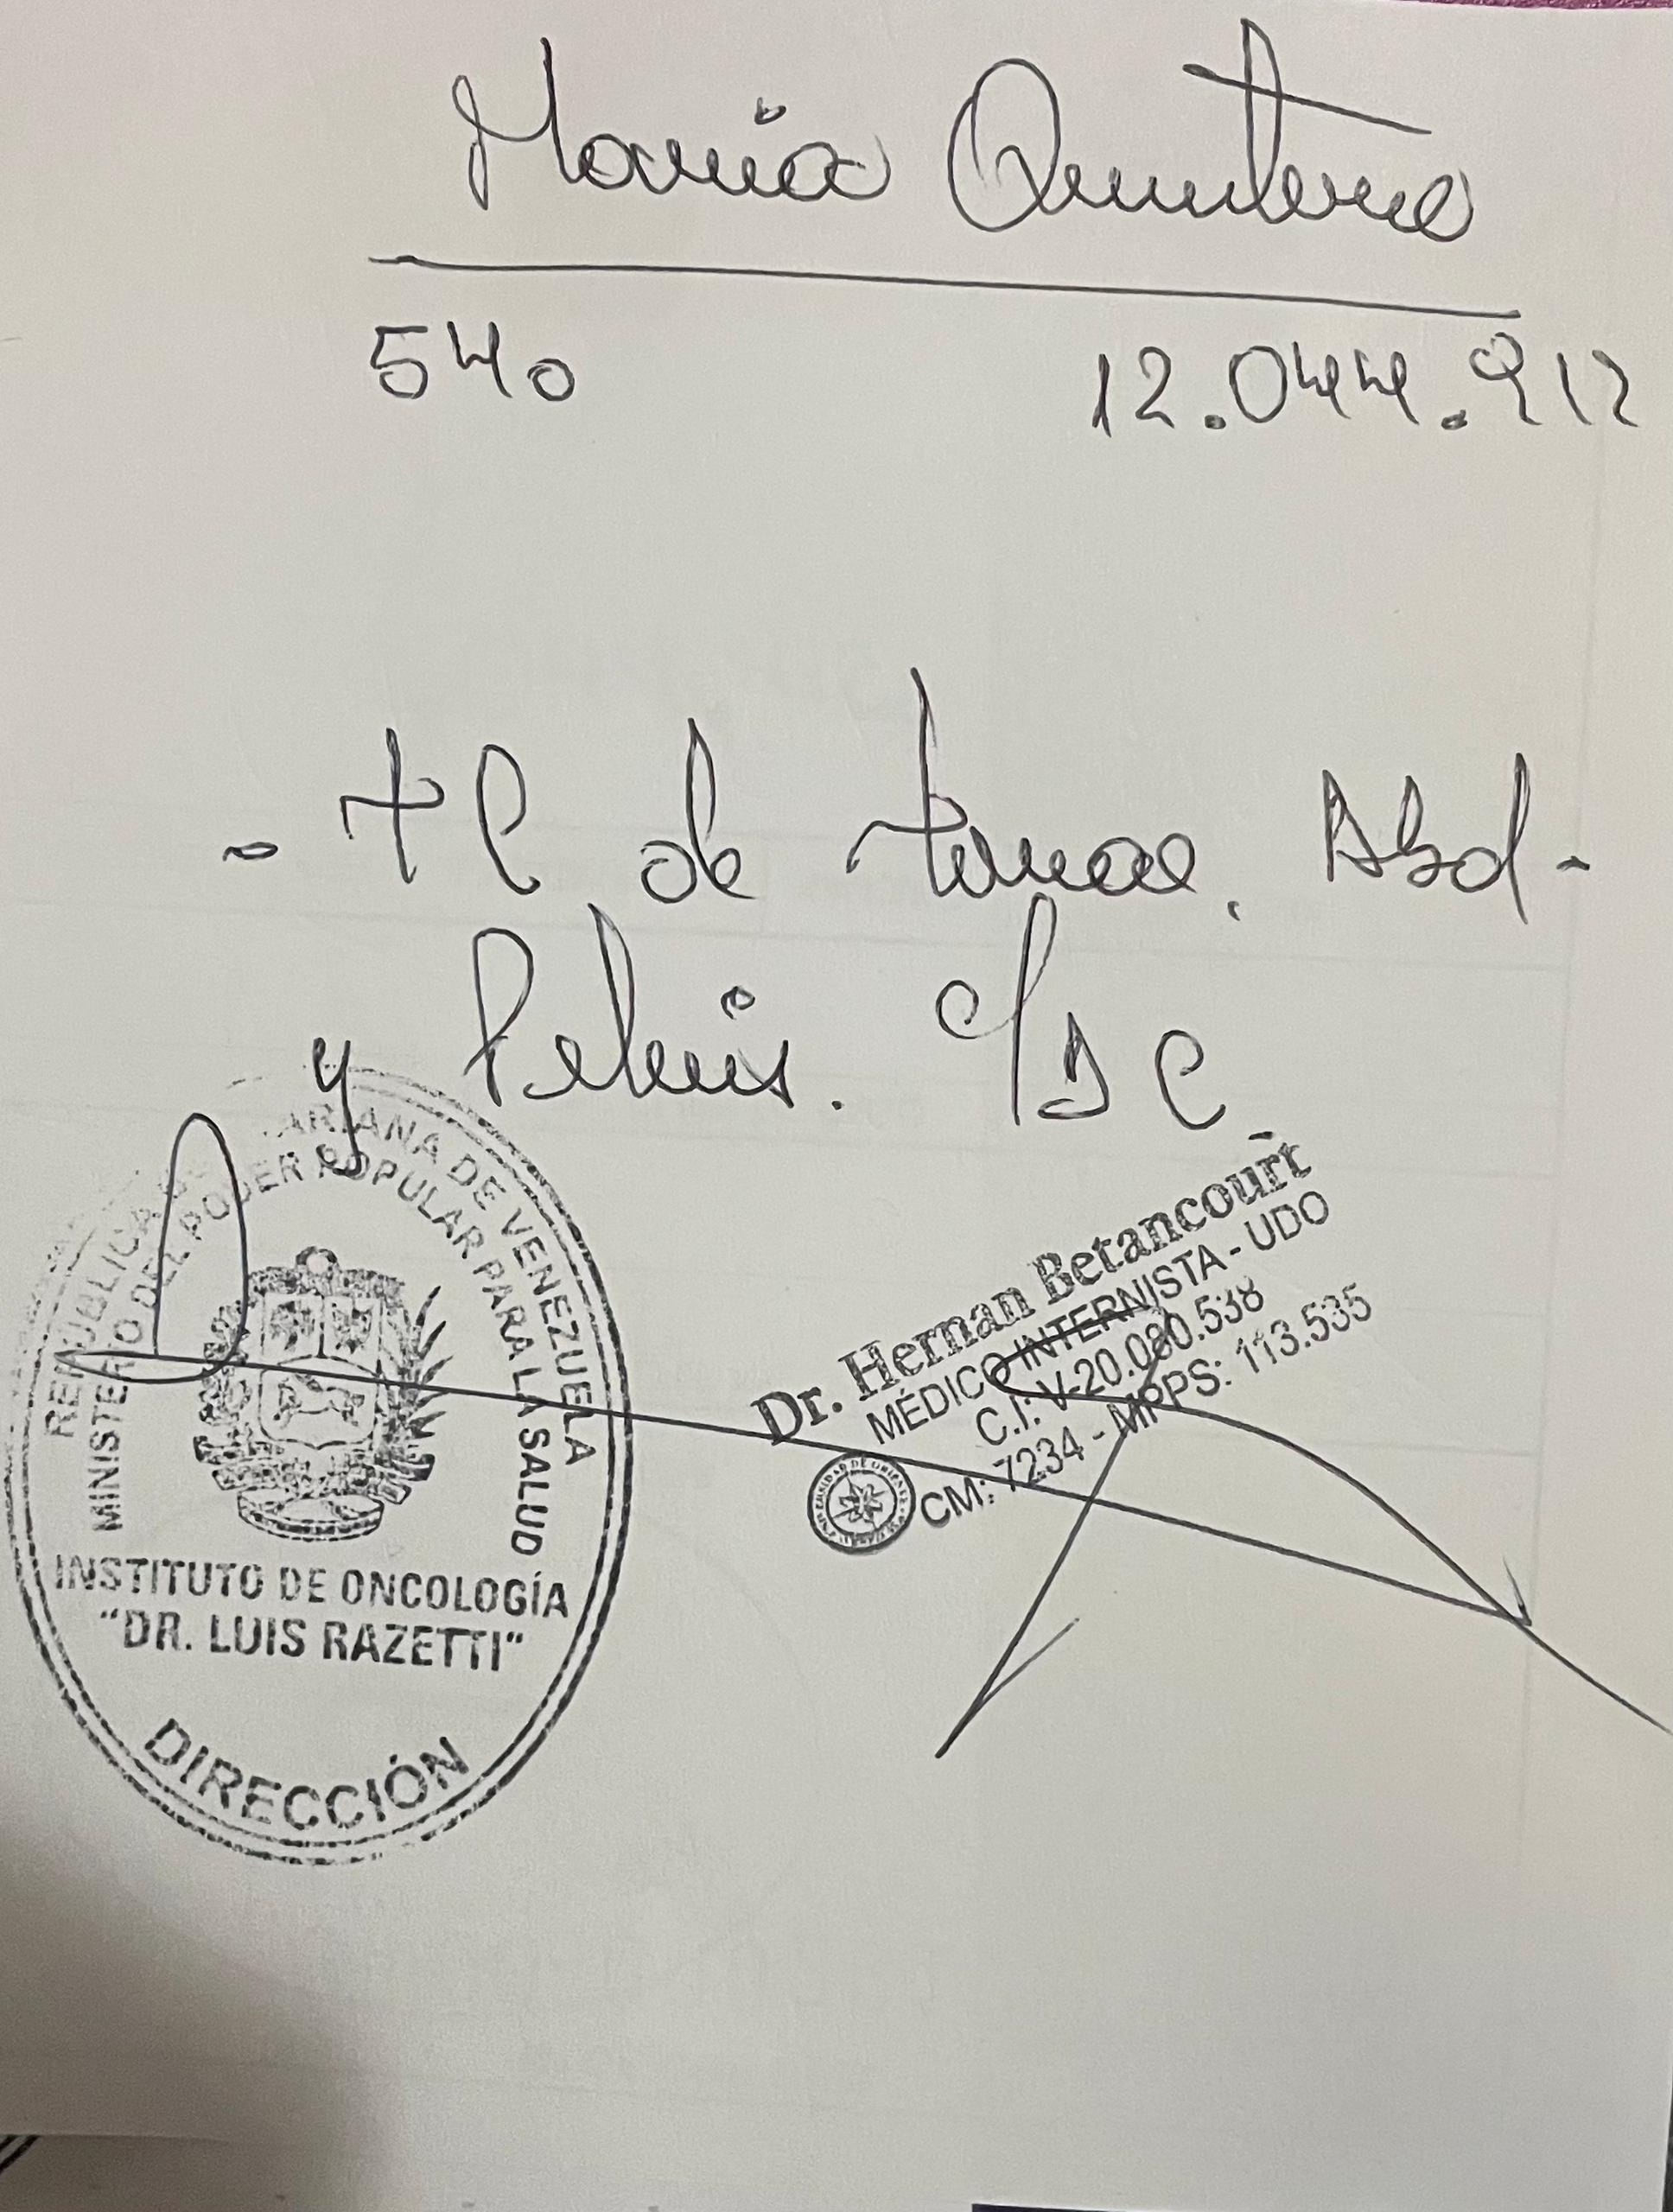 Maria Quintero
54a 12.044.912
- TC de torax, Abd-
y Pelvis. C/DC
REPÚBLICA BOLIVARIANA DE VENEZUELA
MINISTERIO DEL PODER POPULAR PARA LA SALUD
INSTITUTO DE ONCOLOGÍA
"DR. LUIS RAZETTI"
DIRECCIÓN
Dr. Hernan Betancourt
MÉDICO INTERNISTA - UDO
C.I: V-20.080.538
CM: 7234 - MPPS: 113.535